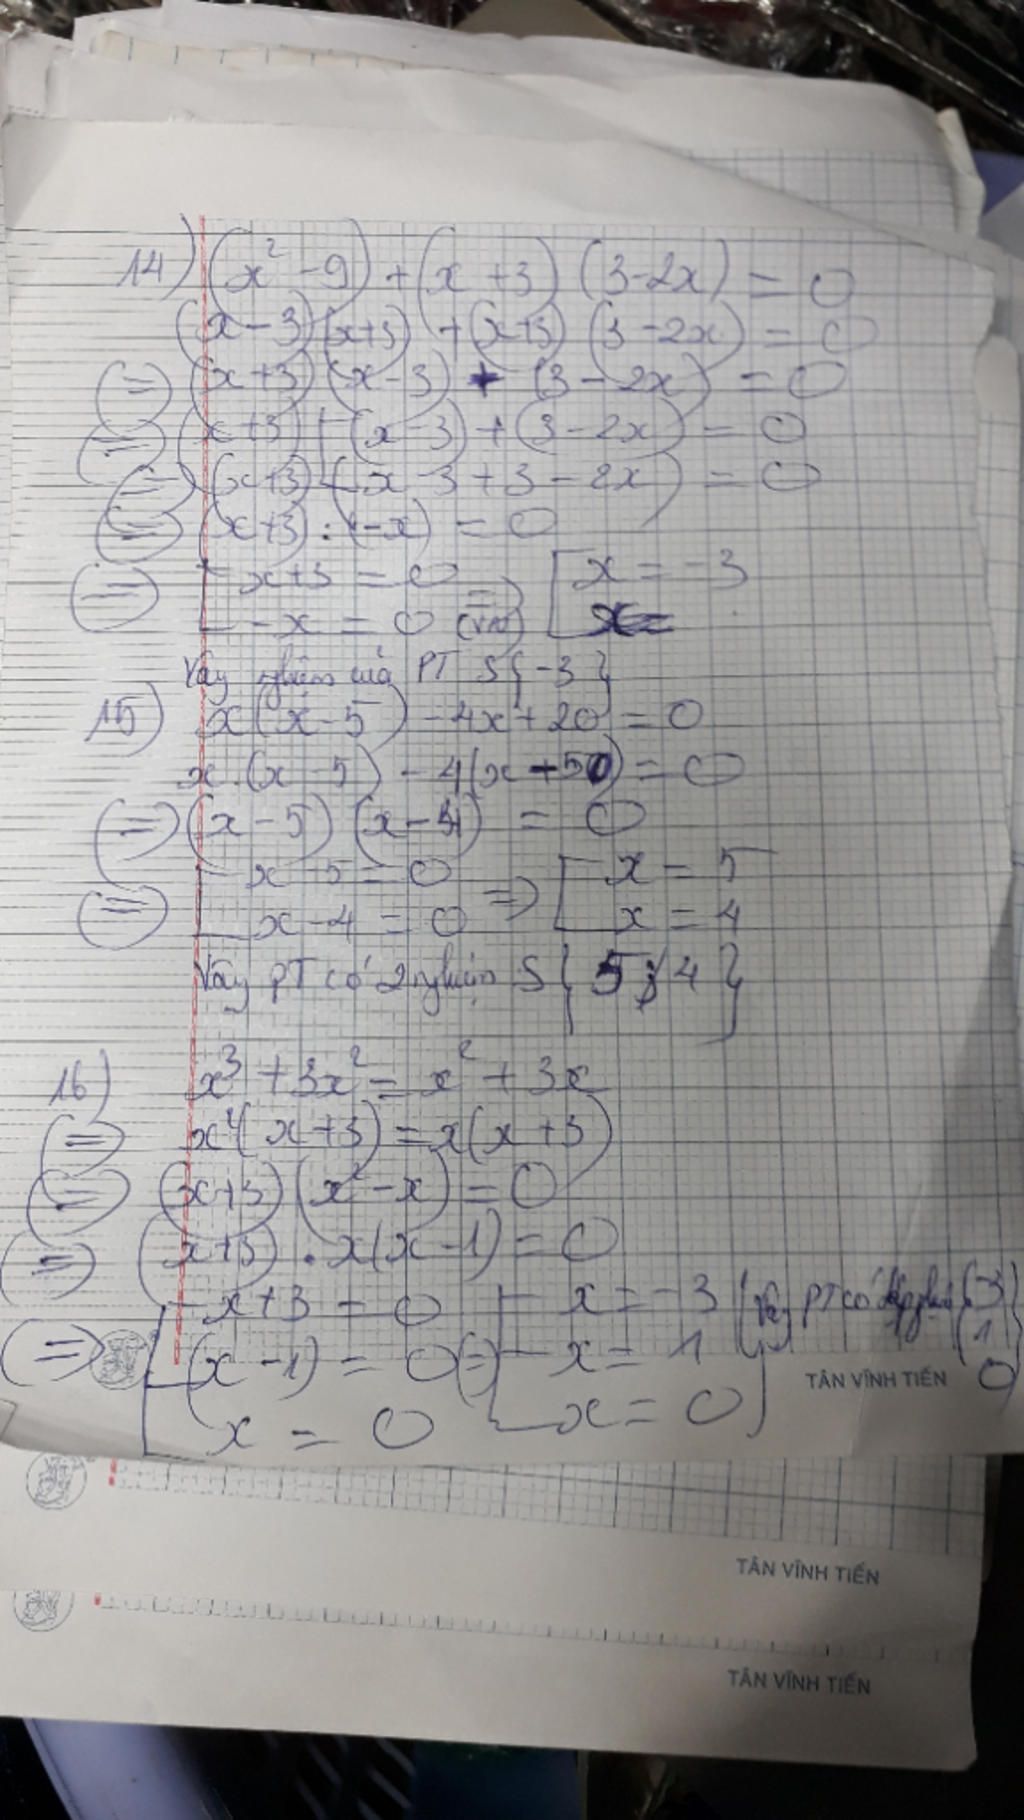 14) (x² - 9) + (x + 3) (3 - 2x) = 0
(x - 3) (x+3) + (x+3) (3 - 2x) = 0
(=) (x+3) (x - 3) + (3 - 2x) = 0
(=) (x+3) [(x-3) + (3 - 2x) = 0
(=) (x+3) (x - 3 + 3 - 2x) = 0
(=) (x+3) . (-x) = 0
(=) [ x+3 = 0 =) [ x = -3
- x = 0 (vn) x =
Vậy nghiệm của PT S { -3 }
15) x(x - 5) - 4x + 20 = 0
x.(x - 5) - 4(x - 5) = 0
(=) (x - 5) (x - 4) = 0
(=) [ x - 5 = 0 =) [ x = 5
x - 4 = 0 x = 4
Vậy PT có 2 nghiệm S { 5; 4 }
16) x³ + 3x² = x² + 3x
(=) x²( x+3) = x(x + 3)
(=) (x+3) (x² - x) = 0
(=) (x+3) . x(x - 1) = 0
(=) [ x+3 = 0 (=) [ x = -3
(x - 1) = 0 x = 1
x = 0 x = 0
Vậy PT có nghiệm { -3
1
0 }
TÂN VĨNH TIẾN
TÂN VĨNH TIẾN
TÂN VĨNH TIẾN